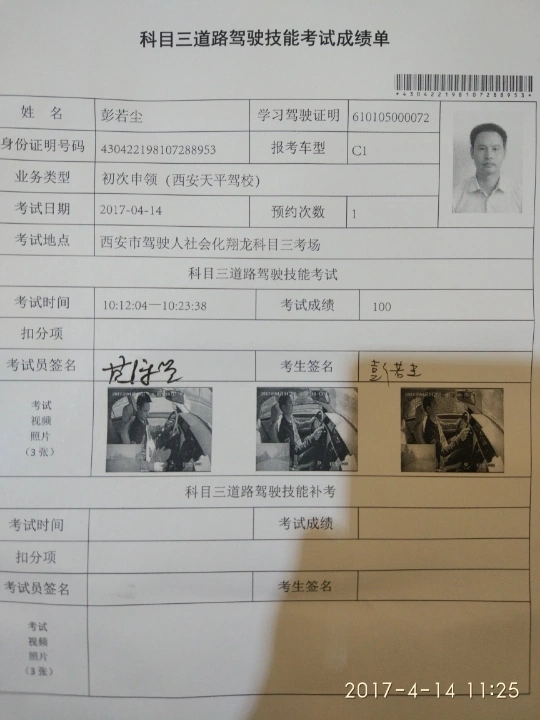 科目三道路驾驶技能考试成绩单
*430422198107288953*
姓 名 彭若尘 学习驾驶证明 610105000072
身份证明号码 430422198107288953 报考车型 C1
业务类型 初次申领（西安天平驾校）
考试日期 2017-04-14 预约次数 1
考试地点 西安市驾驶人社会化翔龙科目三考场
科目三道路驾驶技能考试
考试时间 10:12:04—10:23:38 考试成绩 100
扣分项
考试员签名 考生签名
考试
视频
照片
（3 张）
科目三道路驾驶技能补考
考试时间 考试成绩
扣分项
考试员签名 考生签名
考试
视频
照片
（3 张）
2017-4-14 11:25